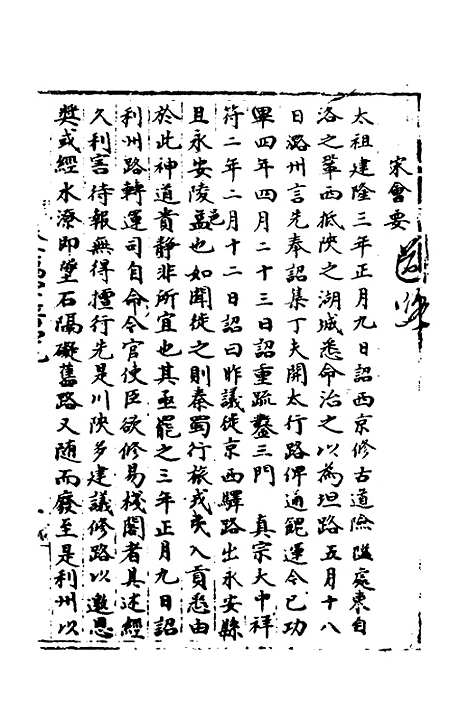 宋會要
道路
太祖建隆三年正月九日詔西京修古道險隘處東自
洛之鞏西抵陝之湖城悉命治之以為坦路五月十八
日潞州言先奉詔集丁夫開太行路俾通餽運今已功
畢四年四月二十三日詔重疏鑿三門　真宗大中祥
符二年二月十二日詔曰昨議徙京西驛路出永安縣
且永安陵邑也如聞徙之則秦蜀行旅戎夷入貢悉由
於此神道貴靜非所宜也其亟罷之三年正月九日詔
利州路轉運司自命令官使臣欲修易棧閣者具述經
久利害待報無得擅行先是川陝多建議修路以邀恩
奬或經水潦即墮石隔礙舊路又隨而廢至是利州以